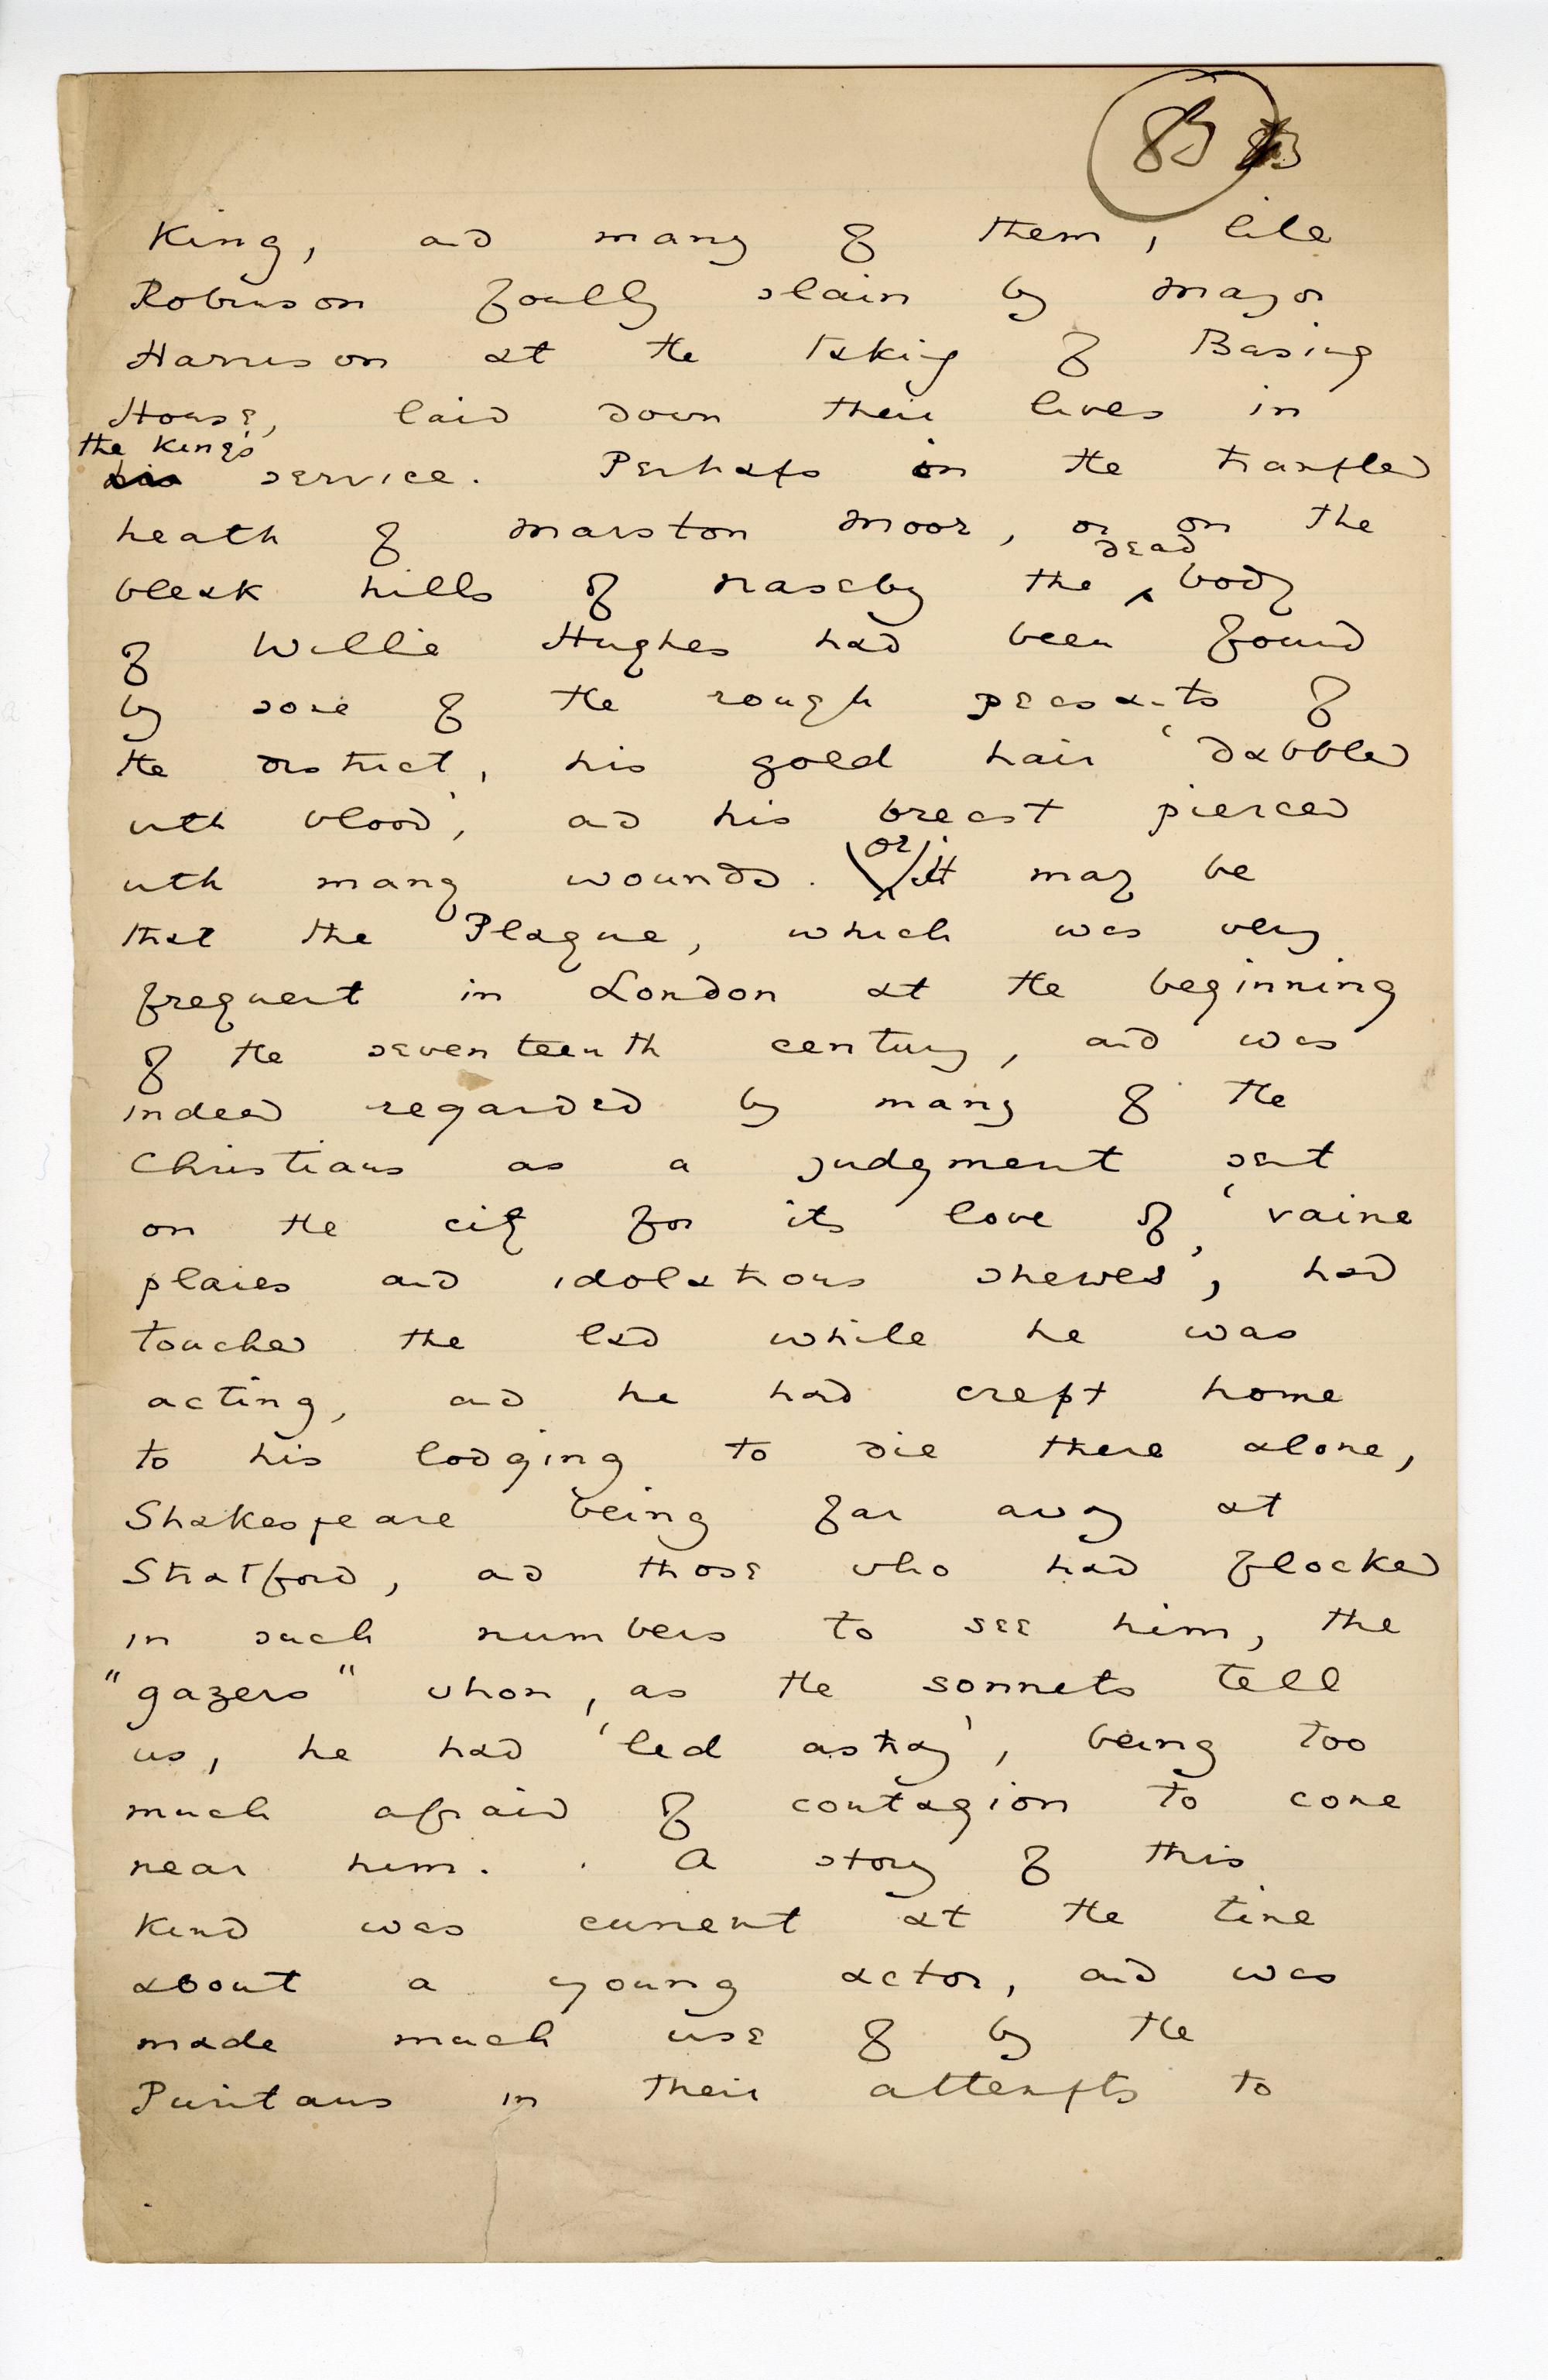 85
King, and many of them, like
Robinson foully slain by Major
Harrison at the taking of Basing
House, laid down their lives in
the King's
his service. Perhaps on the trampled
heath of Marston Moor, or on the
dead
bleak hills of Naseby the body
of Willie Hughes had been found
by some of the rough peasants of
the district, his gold hair 'dabbled
with blood', and his breast pierced
or
with many wounds. It may be
that the Plague, which was very
frequent in London at the beginning
of the seventeenth century, and was
indeed regarded by many of the
Christians as a judgment sent
on the city for its love of 'vaine
plaies and idolatrous shewes', had
touched the lad while he was
acting, and he had crept home
to his lodging to die there alone,
Shakespeare being far away at
Stratford, and those who had flocked
in such numbers to see him, the
"gazers" whom, as the sonnets tell
us, he had 'led astray', being too
much afraid of contagion to come
near him. A story of this
kind was current at the time
about a young actor, and was
made much use of by the
Puritans in their attempts to